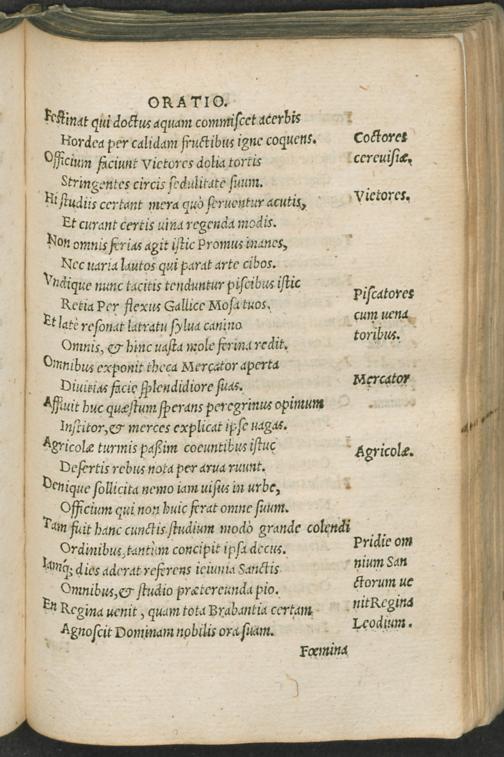 ORATIO.
Festinat qui doctus aquam commiscet acerbis
Hordea per calidam fructibus igne coquens.
Coctores
cereuisiæ.
Officium faciunt Vietores dolia tortis
Stringentes circis sedulitate suum.
Hi studiis certant mera quò seruentur acutis,
Vietores.
Et curant certis uina regenda modis.
Non omnis ferias agit istic Promus inanes,
Nec uaria lautos qui parat arte cibos.
Vndique nunc tacitis tenduntur piscibus istic
Retia Per flexus Gallice Mosa tuos.
Piscatores
cum uena
toribus.
Et latè resonat latratu sylua canino
Omnis, & hinc uasta mole ferina redit.
Omnibus exponit theca Mercator aperta
Diuitias facie splendidiore suas.
Mercator
Affluit huc quæstum sperans peregrinus opimum
Institor, & merces explicat ipse uagas.
Agricolæ turmis paßim coeuntibus istuc
Agricolæ.
Desertis rebus nota per arua ruunt.
Denique sollicita nemo iam uisus in urbe,
Officium qui non huic ferat omne suum.
Tam fuit hanc cunctis studium modò grande colendi
Ordinibus, tantùm concipit ipsa decus.
Iamq; dies aderat referens ieiunia Sanctis
Omnibus, & studio prætereunda pio.
En Regina uenit, quam tota Brabantia certam
Agnoscit Dominam nobilis ora suam.
Pridie om
nium San
ctorum ue
nit Regina
Leodium.
Fœmina